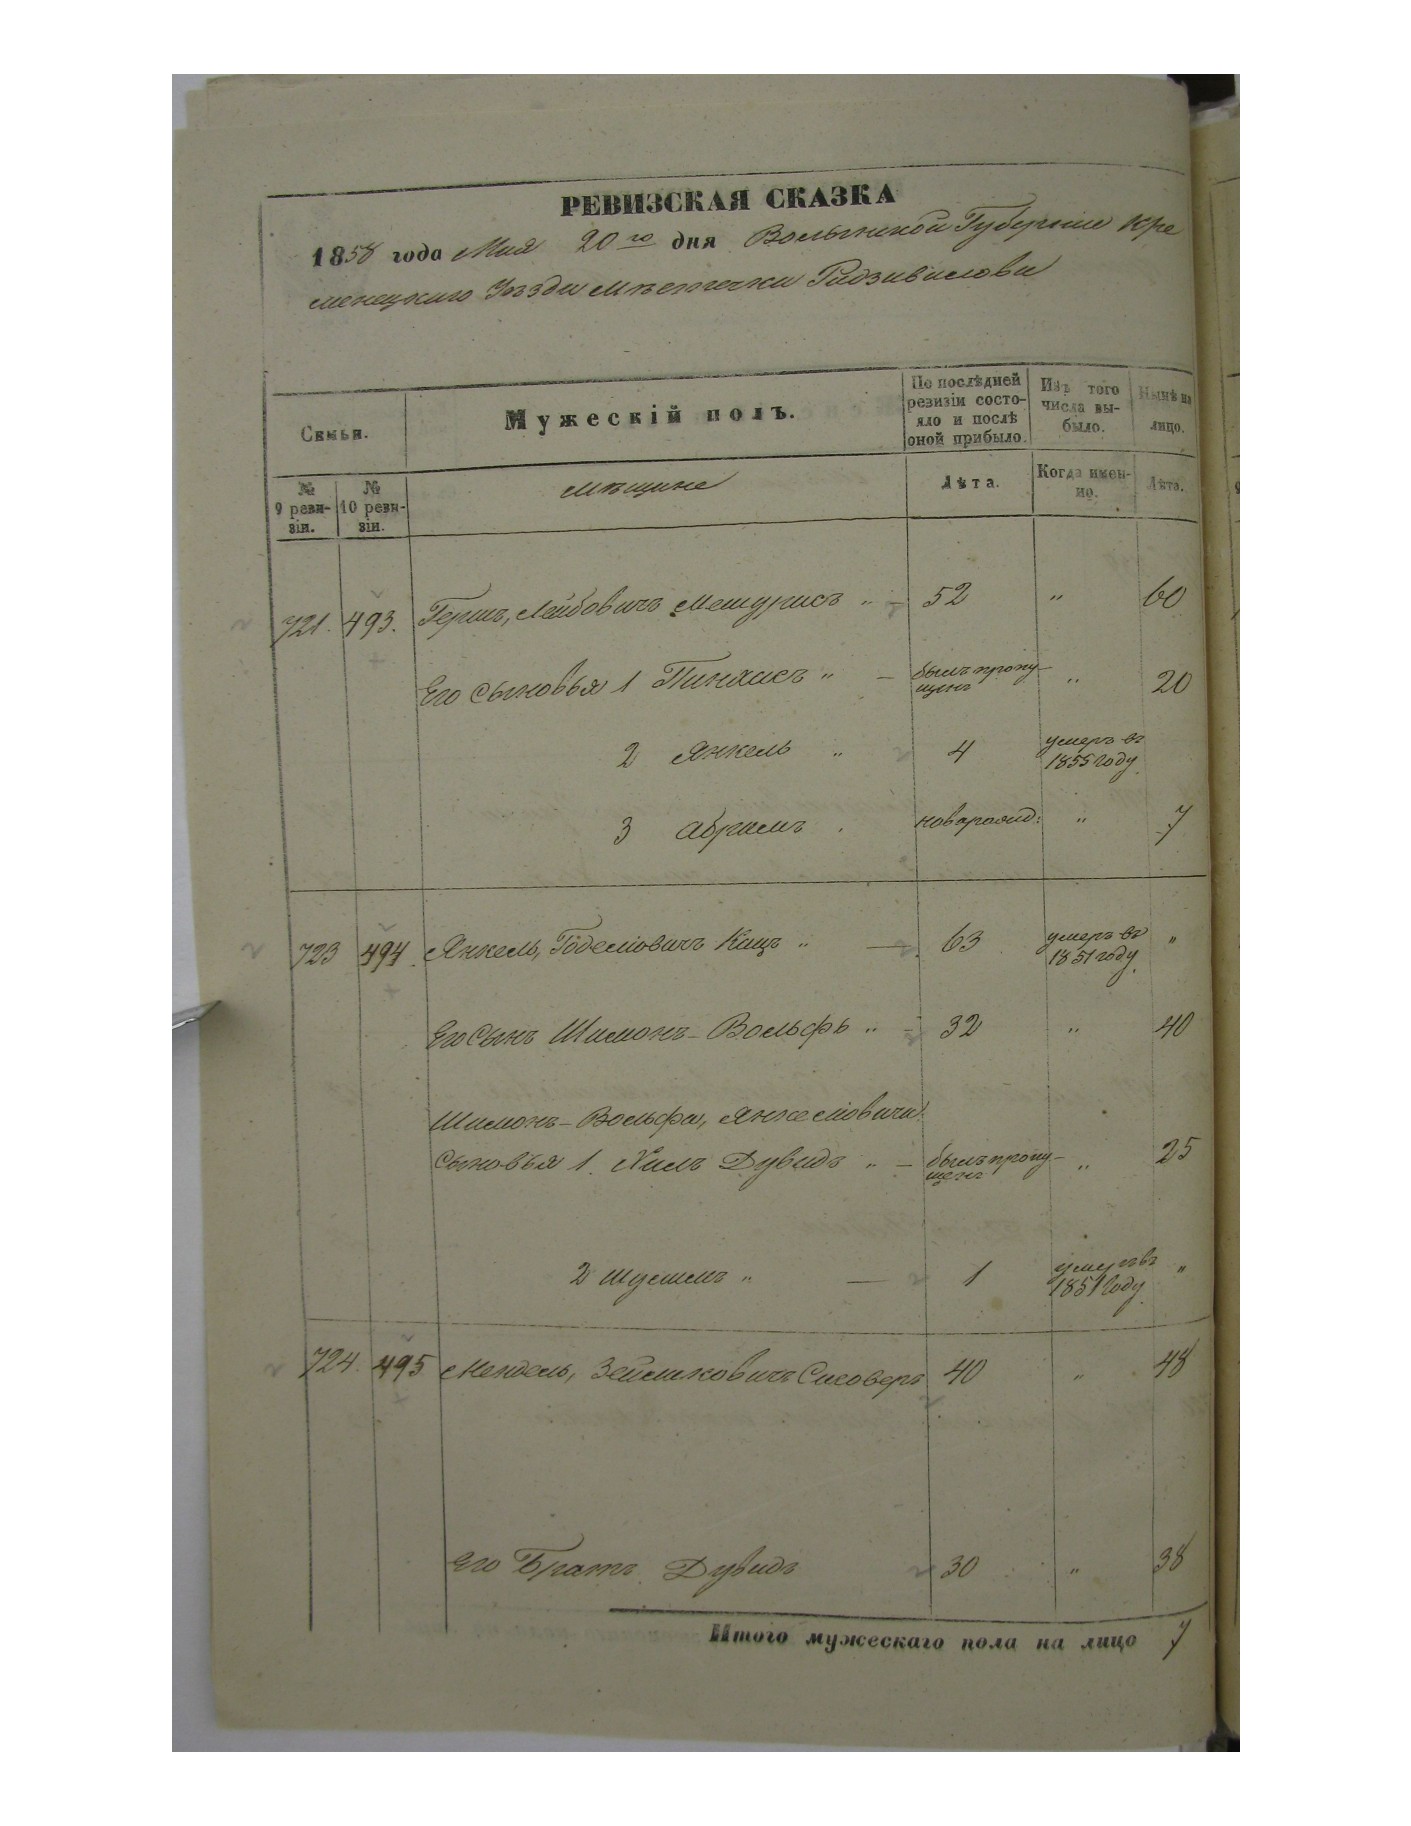 РЕВИЗСКАЯ СКАЗКА
1858 года Мая 20го дня Волынской Губернiи Кре
менецкаго Уѣзда Мѣстечка Радзивилова
Семьи.
Мужескiй полъ.
По послѣдней ревизiи состояло и послѣ оной прибыло.
Изъ того числа выбыло.
Нынѣ на лицо.
№ 9 ревизiи.
№ 10 ревизiи.
мѣщане
Лѣта.
Когда именно.
Лѣта.
721. 493. Гершъ, Лейбовичъ „ — 52 „ 60
Его Сыновья 1 Пинхасъ „ — былъ пропущенъ „ 20
2 Янкель „ 4 умеръ въ 1855 году
3 Абрамъ новарожд: „ 7
723 494. Янкель, Кацъ „ — 63 умеръ въ 1851 году „
Его Сынъ Шимонъ-Вольфъ „ — 32 „ 40
Шимонъ-Вольфа, Янкелiовича
Сыновья 1. Хилъ Дувидъ „ — былъ пропущенъ „ 25
2 „ — 1 умеръ въ 1851 году „
724. 495 Мендель, Зейликовичъ 40 „ 48
Его Братъ Дувидъ 30 „ 38
Итого мужескаго пола на лицо 7